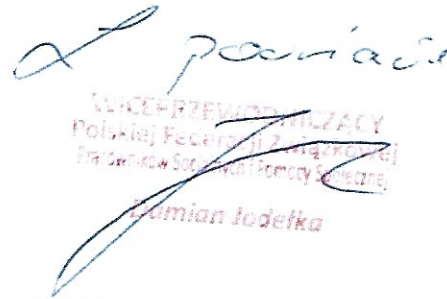 Z poważa
WICEPRZEWODNICZĄCY
Polskiej Federacji Związkowej
Pracowników Socjalnych i Pomocy Społecznej
Damian Jodełka